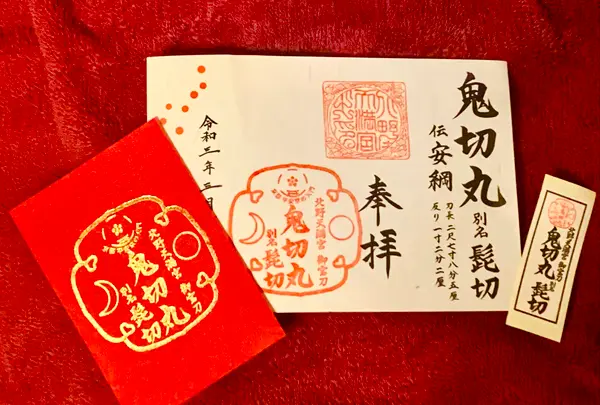 鬼切丸 別名 髭切
伝 安綱
刀長 二尺七寸八分五厘
反り 一寸二分二厘
奉拝
北野天満宮 御宝刀
鬼切丸
別名 髭切
令和三年三月
北野天満宮 御宝刀
鬼切丸
別名 髭切
北野天満宮 御宝刀
鬼切丸 別名 髭切